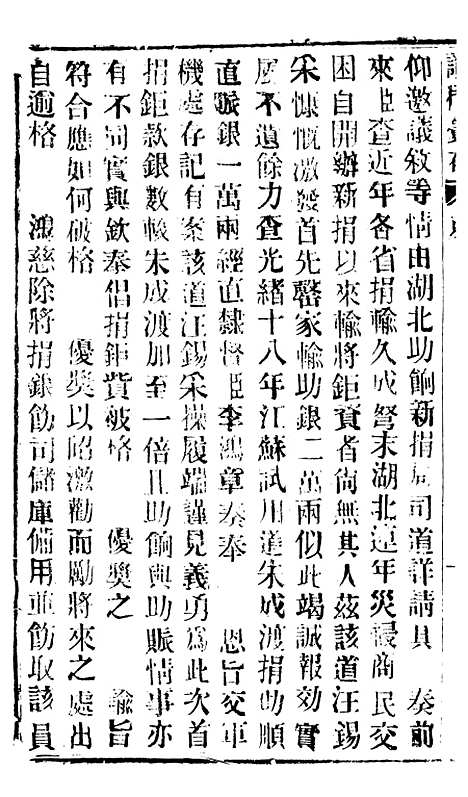 仰邀議敘等情由湖北助餉新捐局司道詳請具　奏前
來臣查近年各省捐輸久成弩末湖北連年災祲商民交
困自開辦新捐以來輸將鉅資者尚無其人茲該道汪錫
采慷慨激發首先罄家輸助銀二萬兩似此竭誠報効實
屬不遺餘力查光緒十八年江蘇試用道朱成渡捐助順
直賑銀一萬兩經直隸督臣李鴻章奏奉　恩旨交軍
機處存記有案該道汪錫采操履端謹見義勇爲此次首
捐鉅款銀數較朱成渡加至一倍且助餉與助賑情事亦
有不同實與欽奉倡捐鉅貲破格　優獎之　諭旨
符合應如何破格　優獎以昭激勸而勵將來之處出
自逾格　鴻慈除將捐銀飭司儲庫備用並飭取該員